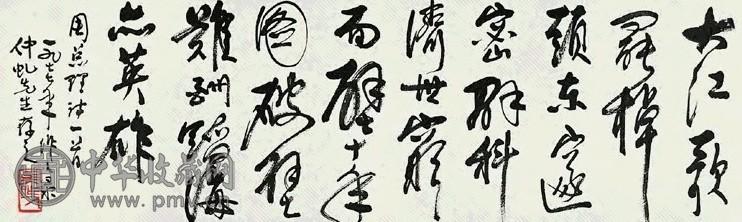 大江歌
罷掉
頭东邃
密群科
濟世窮
面壁十年
圖破壁
難酬蹈海
亦英雄
周总理诗一首
一九七七年
仲虬先生存
中华收藏网
www.pmv